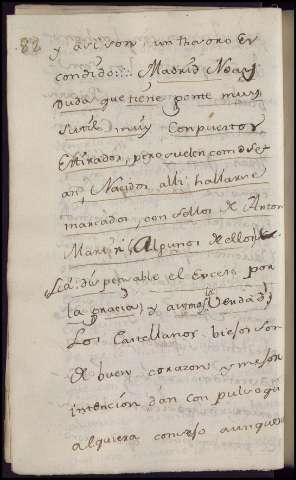 82
y así son un thesoro es
condido:... Madrid No ay
duda que tiene gente muy
sutil muy Conpuestos y
Estirados, pero suelen com o se
an Nacidos alli hallarse
marcados, con sellos de Anton
Martin Algunos de ellos
pensable el Exceso por
la gracia y avemos la Verdad
Los Castellanos biejos son
de buen corazon y mejor
intención dan con pulso qu
alquiera consejo aunque